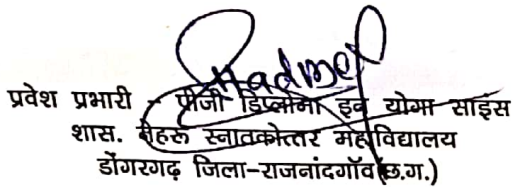 प्रवेश प्रभारी - पीजी डिप्लोमा इन योगा साइंस
शास. नेहरू स्नातकोत्तर महाविद्यालय
डोंगरगढ़ जिला-राजनांदगॉव(छ.ग.)